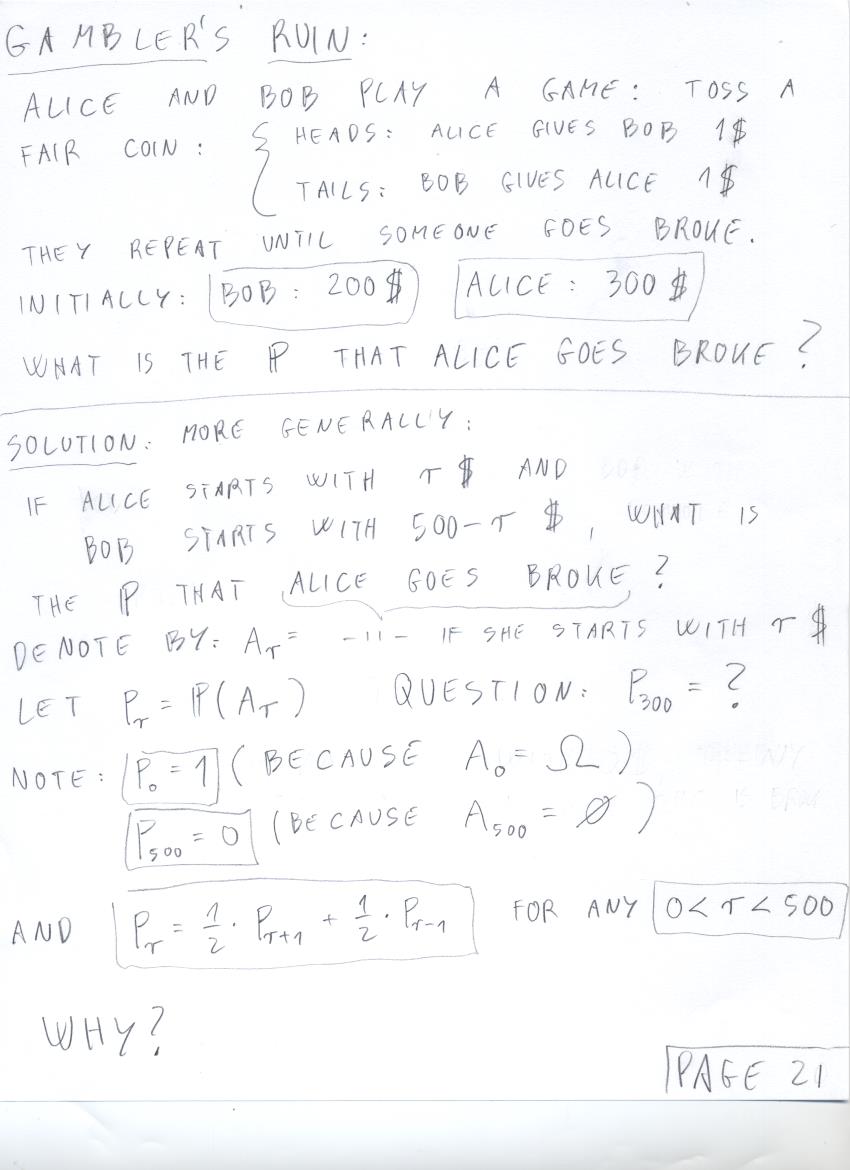 GAMBLER'S RUIN:
ALICE AND BOB PLAY A GAME: TOSS A
FAIR COIN: { HEADS: ALICE GIVES BOB 1$
TAILS: BOB GIVES ALICE 1$
THEY REPEAT UNTIL SOMEONE GOES BROKE.
INITIALLY: BOB: 200 $ ALICE: 300 $
WHAT IS THE ℙ THAT ALICE GOES BROKE?
SOLUTION: MORE GENERALLY:
IF ALICE STARTS WITH r $ AND
BOB STARTS WITH 500-r $, WHAT IS
THE ℙ THAT ALICE GOES BROKE?
DENOTE BY: A_r = -11- IF SHE STARTS WITH r $
LET P_r = ℙ(A_r) QUESTION: P_300 = ?
NOTE: P_0 = 1 (BECAUSE A_0 = Ω)
P_500 = 0 (BECAUSE A_500 = ∅)
AND P_r = 1/2 · P_r+1 + 1/2 · P_r-1 FOR ANY 0 < r < 500
WHY?
PAGE 21